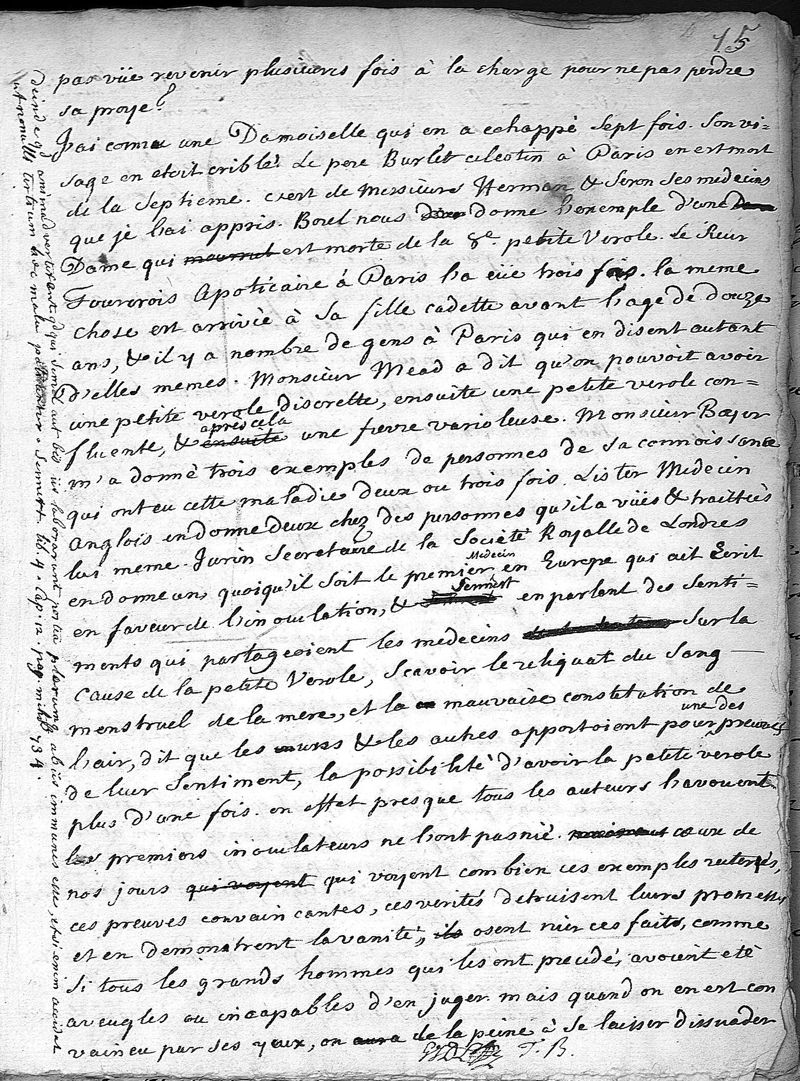 15
pas vüe revenir plusieurs fois à la charge pour ne pas perdre
sa proye?
J'ai connu une Damoiselle qui en a echappé sept fois. Son vi-
sage en etoit criblé. Le pere Burlet celestin à Paris en est mort
de la septieme. c'est de Messieurs Herman & Seron ses medecins
que je l'ai appris. Borel nous donne l'exemple d'une
Dame qui mourut est morte de la 8e. petite Verole. Le Sieur
Fourcrois Apoticaire à Paris l'a eüe trois fois. la meme
chose est arrivée à sa fille cadette avant l'age de douze
ans, & il y a nombre de gens à Paris qui en disent autant
d'elles memes. Monsieur Mead a dit qu'on pouvoit avoir
une petite verole discrette, ensuite une petite verole con-
apres cela
fluente, & ensuite une fievre varioleuse. Monsieur
m'a donné trois exemples de personnes de sa connoissance
qui ont eu cette maladie deux ou trois fois. Lister Medecin
Anglois en donne deux chez des personnes qu'il a vües & traittées
lui meme. Jurin Secretaire de la Societé Royalle de Londres
Medecin
en donne un, quoiqu'il soit le premier en Europe qui ait Ecrit
Sennert
en faveur de l'inoculation, & en parlant des senti-
ments qui partageoient les medecins sur la
cause de la petite Verole, scavoir le reliquat du sang
menstruel de la mere, et la mauvaise constitution de
une des
l'air, dit que les uns & les autres apportoient pour preuves
de leur sentiment, la possibilité d'avoir la petite verole
plus d'une fois. en effet presque tous les auteurs l'avouent
les premiers inoculateurs ne l'ont pas nié. ceux de
nos jours qui voyent qui voyent combien ces exemples reiterés,
ces preuves convaincantes, ces verités detruisent leurs promesses
et en demontrent la vanité, ils osent nier ces faits, comme
si tous les grands hommes qui les ont precedé, avoient eté
aveugles ou incapables d'en juger. mais quand on en est con
vaincu par ses yeux, on aura de la peine à se laisser dissuader
J. B.
Deinde
Sennert. lib. 4. Cap. 12. pag. mihi 734.